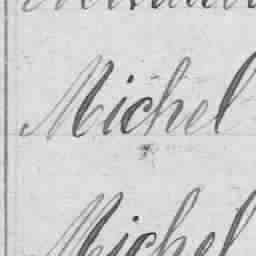 Michel
Michel